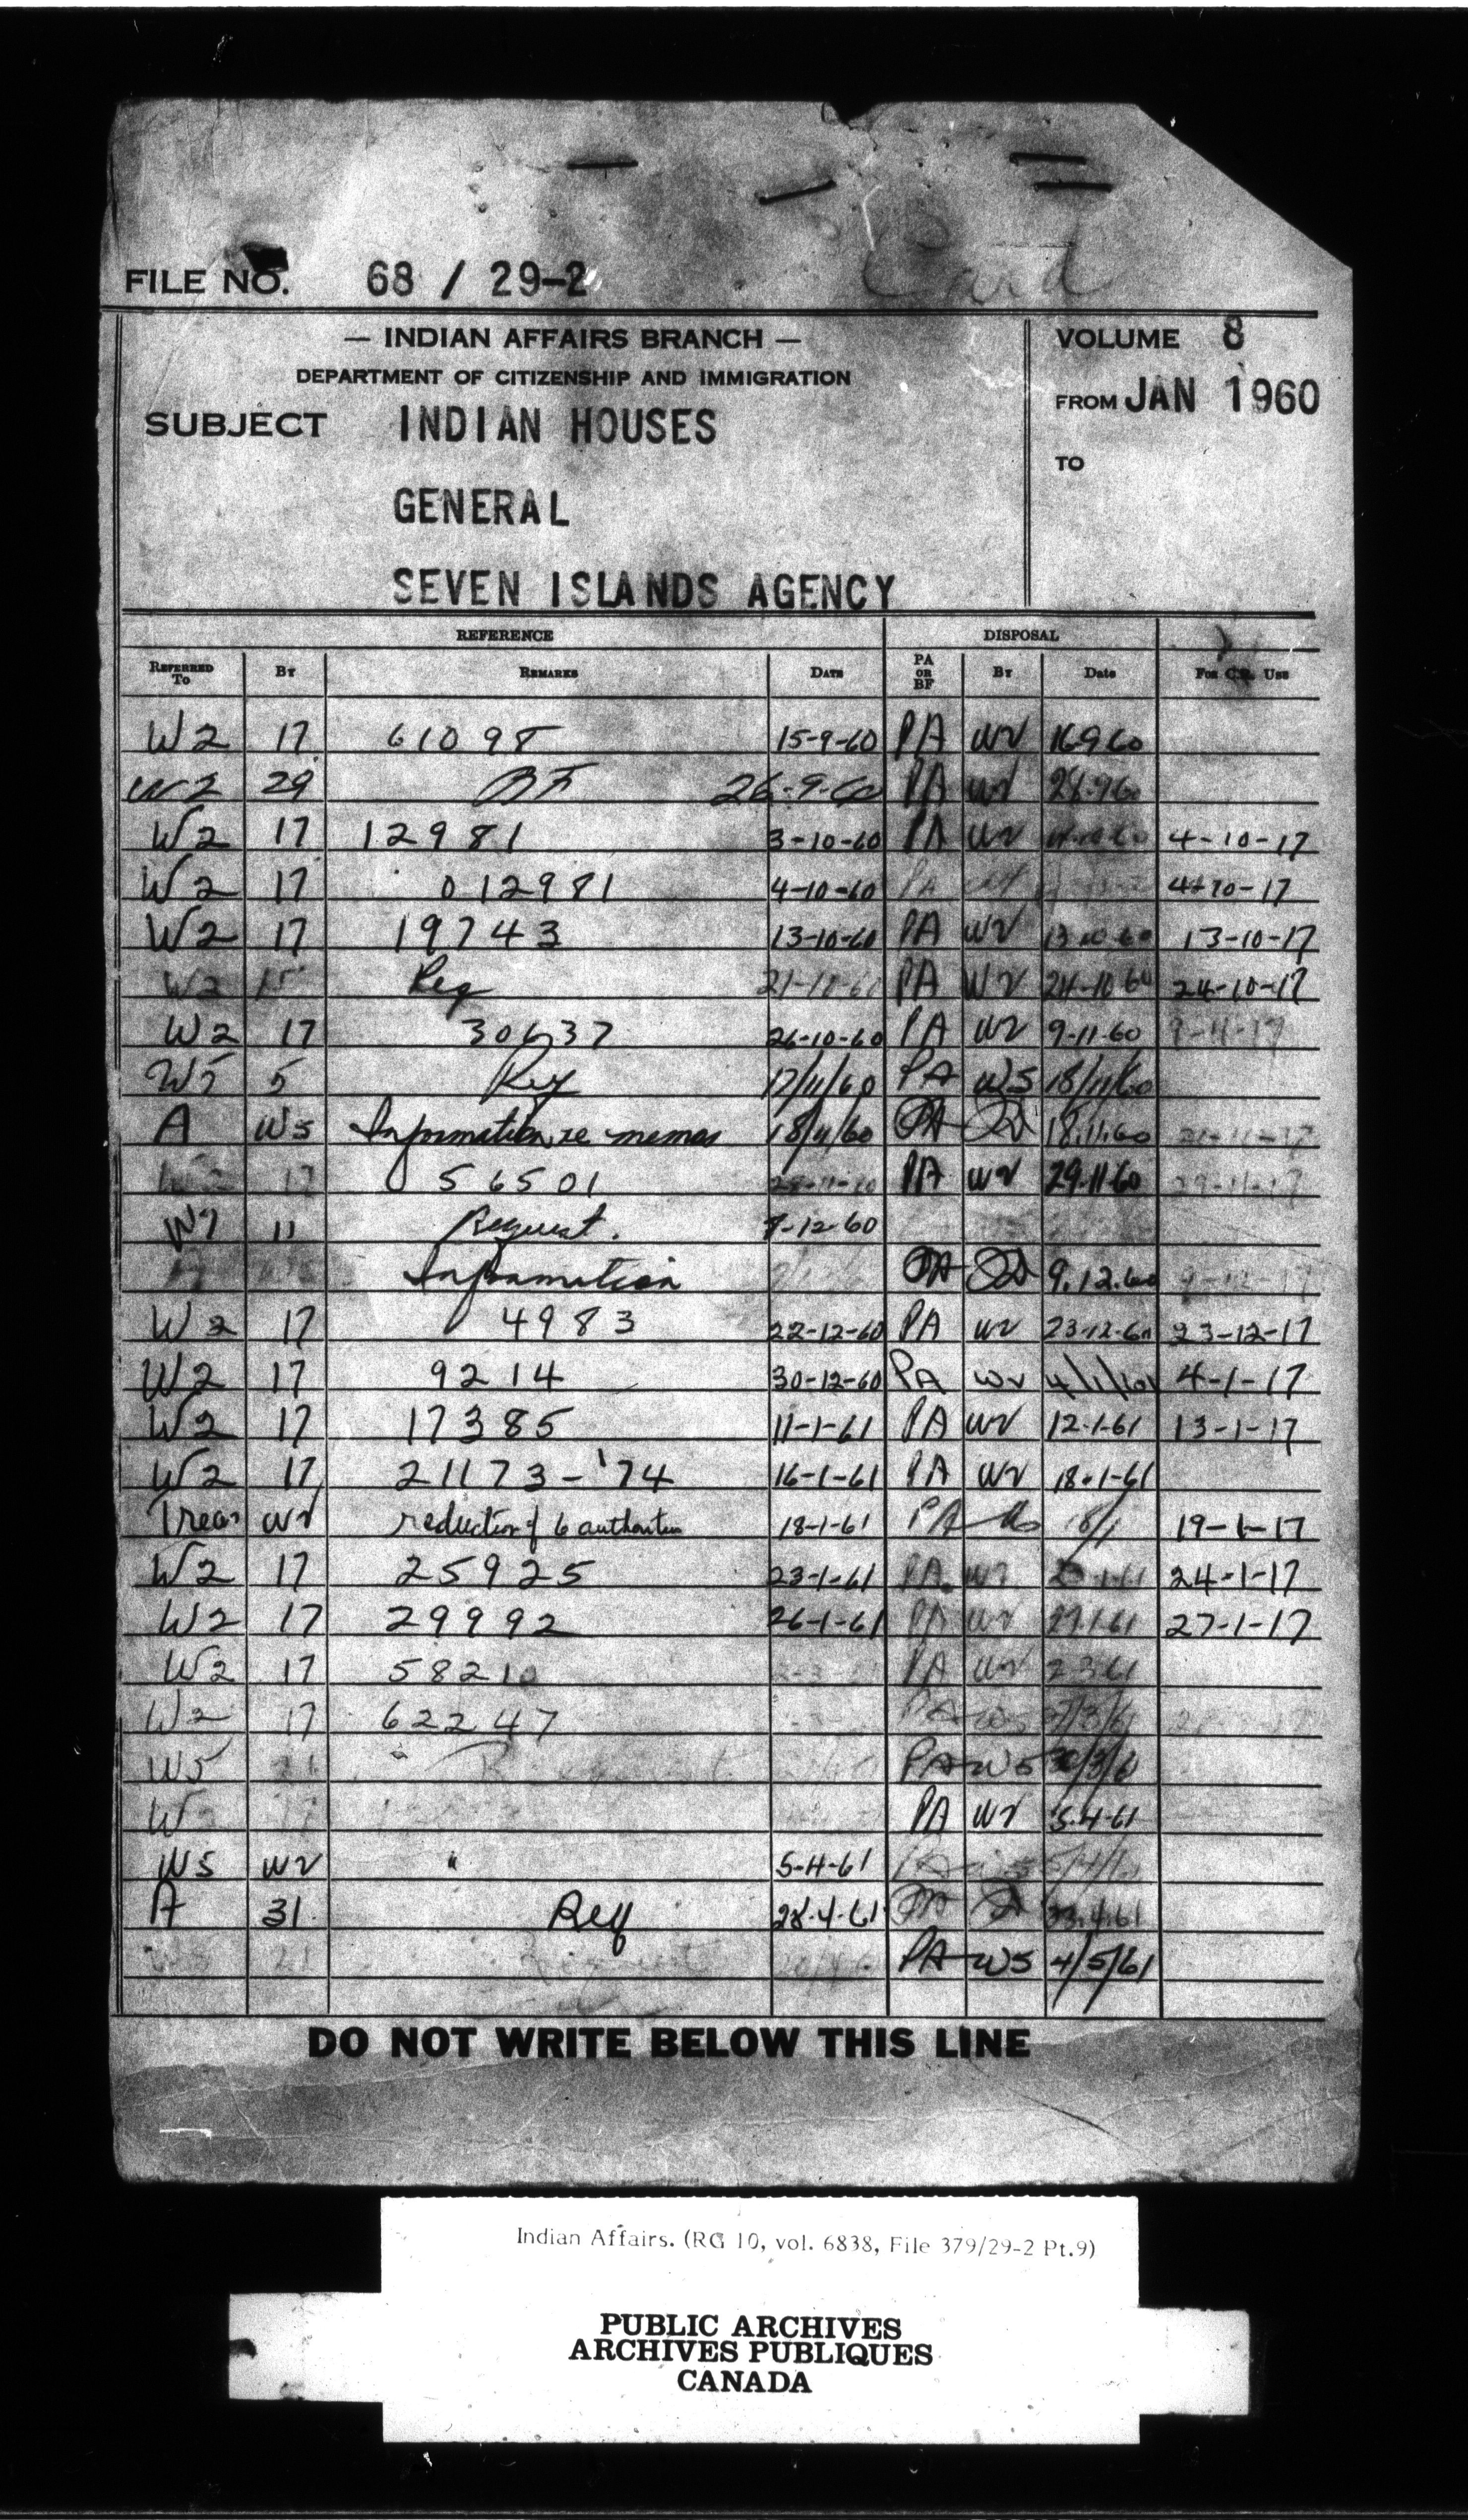 Card
FILE NO. 68 / 29-2
— INDIAN AFFAIRS BRANCH —
DEPARTMENT OF CITIZENSHIP AND IMMIGRATION
SUBJECT INDIAN HOUSES
GENERAL
SEVEN ISLANDS AGENCY
VOLUME 8
FROM JAN 1960
TO
REFERENCE DISPOSAL
REFERRED TO BY REMARKS DATE PA OR BF BY Date FOR C.R. USE
W2 17 61098 15-9-60 PA W2 16 9 60
W2 29 BF 26-9-60 PA W2 28-9-60
W2 17 12981 3-10-60 PA W2 4-10-17
W2 17 012981 4-10-60 PA 4-10-17
W2 17 19743 13-10-60 PA W2 13 10 60 13-10-17
W2 15 Req 21-10-60 PA W2 24-10-60 24-10-17
W2 17 30637 26-10-60 PA W2 9-11-60 9-11-17
W5 5 Req 17/11/60 PA W5 18/11/60
A W5 Information re memos 18/11/60 PA 18.11.60
17 56501 PA W2 29.11.60 29-11-17
11 Request. 7-12-60
Information PA 9.12.60 9-12-17
W2 17 4983 22-12-60 PA W2 23-12-60 23-12-17
W2 17 9214 30-12-60 PA W2 4/1/61 4-1-17
W2 17 17385 11-1-61 PA W2 12-1-61 13-1-17
W2 17 21173-'74 16-1-61 PA W2 18-1-61
Treas W2 reduction of 6 authorities 18-1-61 PA 18/1 19-1-17
W2 17 25925 23-1-61 PA W2 24-1-17
W2 17 29992 26-1-61 PA W2 27-1-61 27-1-17
W2 17 58210 PA W2 2 3 61
W2 17 62247 PA W5
W5 21 Request PA W5 30/3/61
W PA W2 5-4-61
W5 W2 " 5-4-61
A 31 Req 28.4.61 PA
21 PA W5 4/5/61
DO NOT WRITE BELOW THIS LINE
Indian Affairs. (RG 10, vol. 6838, File 379/29-2 Pt.9)
PUBLIC ARCHIVES
ARCHIVES PUBLIQUES
CANADA